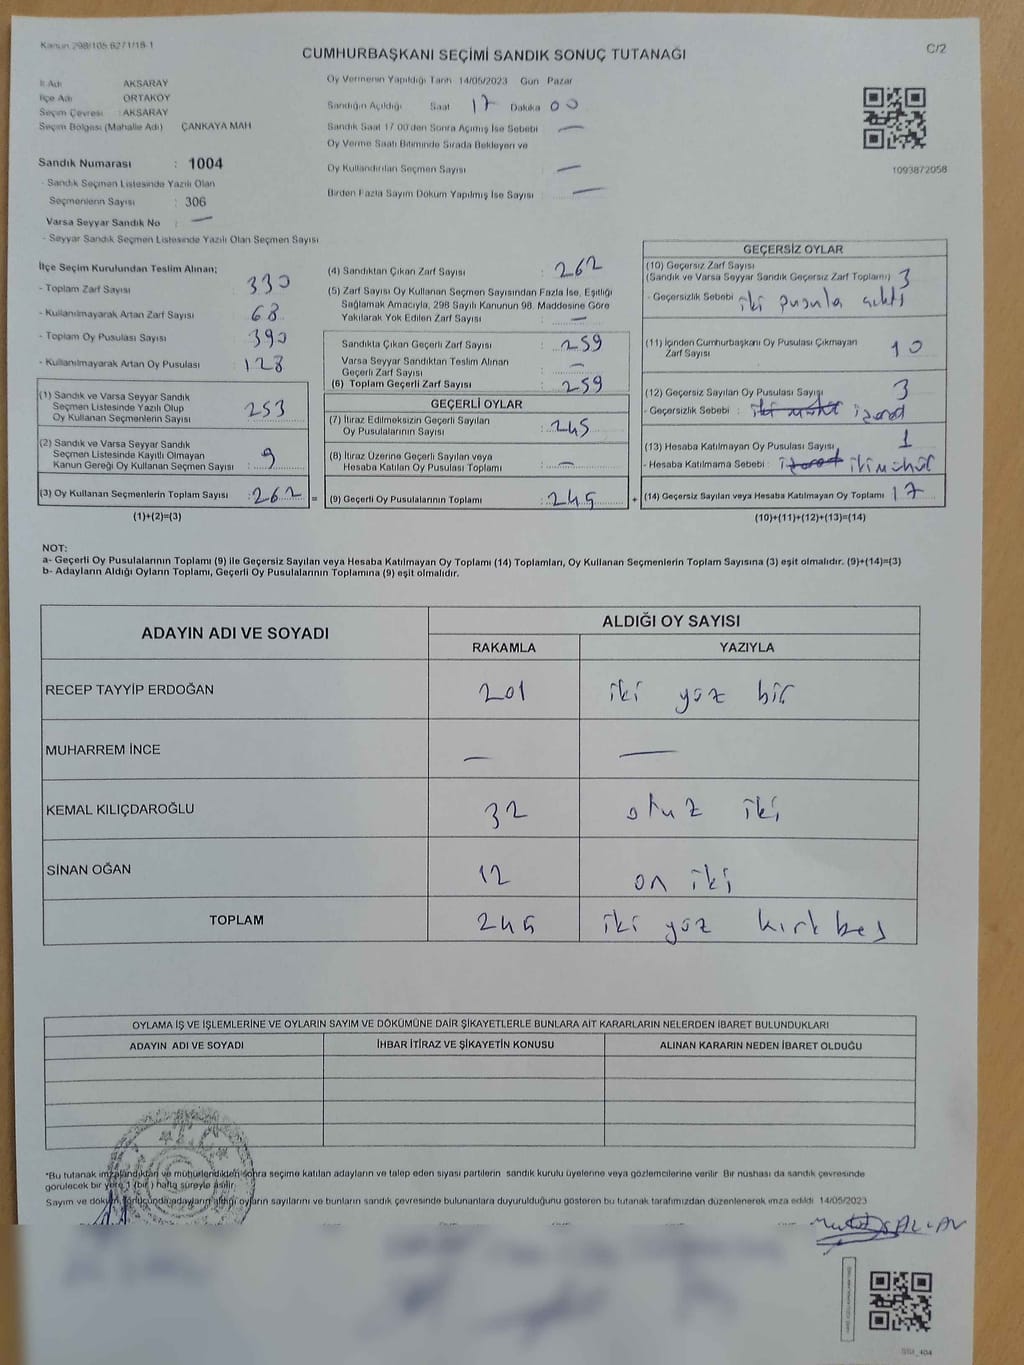 Kanun 298/105.6271/18-1
C/2
CUMHURBAŞKANI SEÇİMİ SANDIK SONUÇ TUTANAĞI
İl Adı : AKSARAY
İlçe Adı : ORTAKÖY
Seçim Çevresi : AKSARAY
Seçim Bölgesi (Mahalle Adı) : ÇANKAYA MAH
Sandık Numarası : 1004
- Sandık Seçmen Listesinde Yazılı Olan
Seçmenlerin Sayısı : 306
Varsa Seyyar Sandık No : —
- Seyyar Sandık Seçmen Listesinde Yazılı Olan Seçmen Sayısı
Oy Vermenin Yapıldığı Tarih 14/05/2023 Gün Pazar
Sandığın Açıldığı Saat 17 Dakika 00
Sandık Saat 17 00'den Sonra Açılmış İse Sebebi —
Oy Verme Saati Bitiminde Sırada Bekleyen ve
Oy Kullandırılan Seçmen Sayısı —
Birden Fazla Sayım Döküm Yapılmış İse Sayısı : —
1093872058
İlçe Seçim Kurulundan Teslim Alınan;
- Toplam Zarf Sayısı : 330
- Kullanılmayarak Artan Zarf Sayısı : 68
- Toplam Oy Pusulası Sayısı : 390
- Kullanılmayarak Artan Oy Pusulası : 128
(1) Sandık ve Varsa Seyyar Sandık
Seçmen Listesinde Yazılı Olup
Oy Kullanan Seçmenlerin Sayısı : 253
(2) Sandık ve Varsa Seyyar Sandık
Seçmen Listesinde Kayıtlı Olmayan
Kanun Gereği Oy Kullanan Seçmen Sayısı : 9
(3) Oy Kullanan Seçmenlerin Toplam Sayısı : 262 =
(1)+(2)=(3)
(4) Sandıktan Çıkan Zarf Sayısı : 262
(5) Zarf Sayısı Oy Kullanan Seçmen Sayısından Fazla İse, Eşitliği
Sağlamak Amacıyla, 298 Sayılı Kanunun 98. Maddesine Göre
Yakılarak Yok Edilen Zarf Sayısı : —
Sandıkta Çıkan Geçerli Zarf Sayısı : 259
Varsa Seyyar Sandıktan Teslim Alınan
Geçerli Zarf Sayısı : —
(6) Toplam Geçerli Zarf Sayısı : 259
GEÇERLİ OYLAR
(7) İtiraz Edilmeksizin Geçerli Sayılan
Oy Pusulalarının Sayısı : 245
(8) İtiraz Üzerine Geçerli Sayılan veya
Hesaba Katılan Oy Pusulası Toplamı : —
(9) Geçerli Oy Pusulalarının Toplamı : 245 +
GEÇERSİZ OYLAR
(10) Geçersiz Zarf Sayısı
(Sandık ve Varsa Seyyar Sandık Geçersiz Zarf Toplamı) : 3
- Geçersizlik Sebebi : iki pusula çıktı
(11) İçinden Cumhurbaşkanı Oy Pusulası Çıkmayan
Zarf Sayısı : 10
(12) Geçersiz Sayılan Oy Pusulası Sayısı : 3
- Geçersizlik Sebebi : iki mühür
(13) Hesaba Katılmayan Oy Pusulası Sayısı : 1
- Hesaba Katılmama Sebebi : iki mühür
(14) Geçersiz Sayılan veya Hesaba Katılmayan Oy Toplamı 17
(10)+(11)+(12)+(13)=(14)
NOT:
a- Geçerli Oy Pusulalarının Toplamı (9) ile Geçersiz Sayılan veya Hesaba Katılmayan Oy Toplamı (14) Toplamları, Oy Kullanan Seçmenlerin Toplam Sayısına (3) eşit olmalıdır. (9)+(14)=(3)
b- Adayların Aldığı Oyların Toplamı, Geçerli Oy Pusulalarının Toplamına (9) eşit olmalıdır.
ADAYIN ADI VE SOYADI
ALDIĞI OY SAYISI
RAKAMLA YAZIYLA
RECEP TAYYİP ERDOĞAN 201 iki yüz bir
MUHARREM İNCE — —
KEMAL KILIÇDAROĞLU 32 otuz iki
SİNAN OĞAN 12 on iki
TOPLAM 245 iki yüz kırk beş
OYLAMA İŞ VE İŞLEMLERİNE VE OYLARIN SAYIM VE DÖKÜMÜNE DAİR ŞİKAYETLERLE BUNLARA AİT KARARLARIN NELERDEN İBARET BULUNDUKLARI
ADAYIN ADI VE SOYADI İHBAR İTİRAZ VE ŞİKAYETİN KONUSU ALINAN KARARIN NEDEN İBARET OLDUĞU
*Bu tutanak imzalandıktan ve mühürlendikten sonra seçime katılan adayların ve talep eden siyasi partilerin sandık kurulu üyelerine veya gözlemcilerine verilir. Bir nüshası da sandık çevresinde
görülecek bir yere 1 (bir) hafta süreyle asılır.
Sayım ve döküm sonucunda adayların aldığı oyların sayılarını ve bunların sandık çevresinde bulunanlara duyurulduğunu gösteren bu tutanak tarafımızdan düzenlenerek imza edildi 14/05/2023